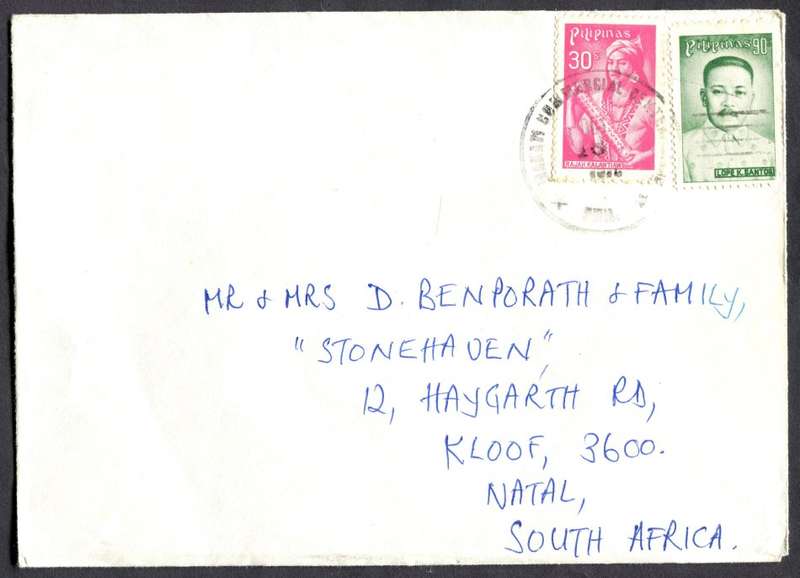 Pilipinas
30s
RAJAH KALANTIAW
Pilipinas 90
LOPE K. SANTOS
COMMERCIAL
MR & MRS D. BENPORATH & FAMILY,
"STONEHAVEN",
12, HAYGARTH RD,
KLOOF, 3600.
NATAL,
SOUTH AFRICA.